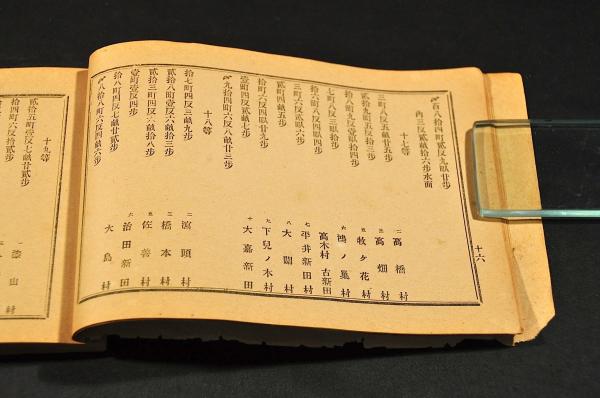 〆百八拾四町貳反九畝廿步
內三反貳畝拾六步水面
十七等
三町八反五畝廿五步 二 高橋村
貳拾九町五反拾三步 三 高畑村
拾八町九反壹畝拾四步 五 牧ケ花村
七町八反三畝拾步 六 鴻ノ巢村
拾六町八反四畝四步 高木村古新田
三町六反貳畝六步 七 平井新田村
貳町四畝五步 八 大關村
拾町六反四畝廿九步 九 下兒ノ木村
壹町四反貳畝七步 十 大嘉新田
〆九拾四町六反八畝廿三步
十八等
拾七町四反三畝九步 二 瀉頭村
貳拾八町壹反六畝拾八步 三 橋本村
貳拾三町四反六畝拾八步 五 佐善村
壹町壹反四步 六 治田新田
拾八町四反七畝廿貳步 大島村
〆八拾八町六反四畝六步
十六
十九等
貳拾五町壹反七畝廿貳步
拾四町六反拾貳步